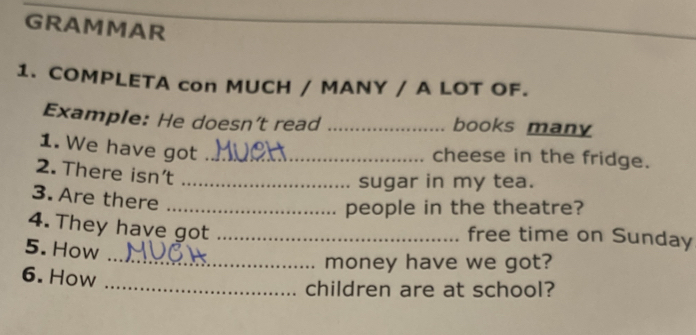 GRAMMAR
1. COMPLETA con MUCH / MANY / A LOT OF.
Example: He doesn't read ..................... books many
1. We have got ..MUCH......................... cheese in the fridge.
2. There isn't .............................. sugar in my tea.
3. Are there .............................. people in the theatre?
4. They have got ........................................... free time on Sunday
5. How ...MUCH................... money have we got?
6. How .................................. children are at school?